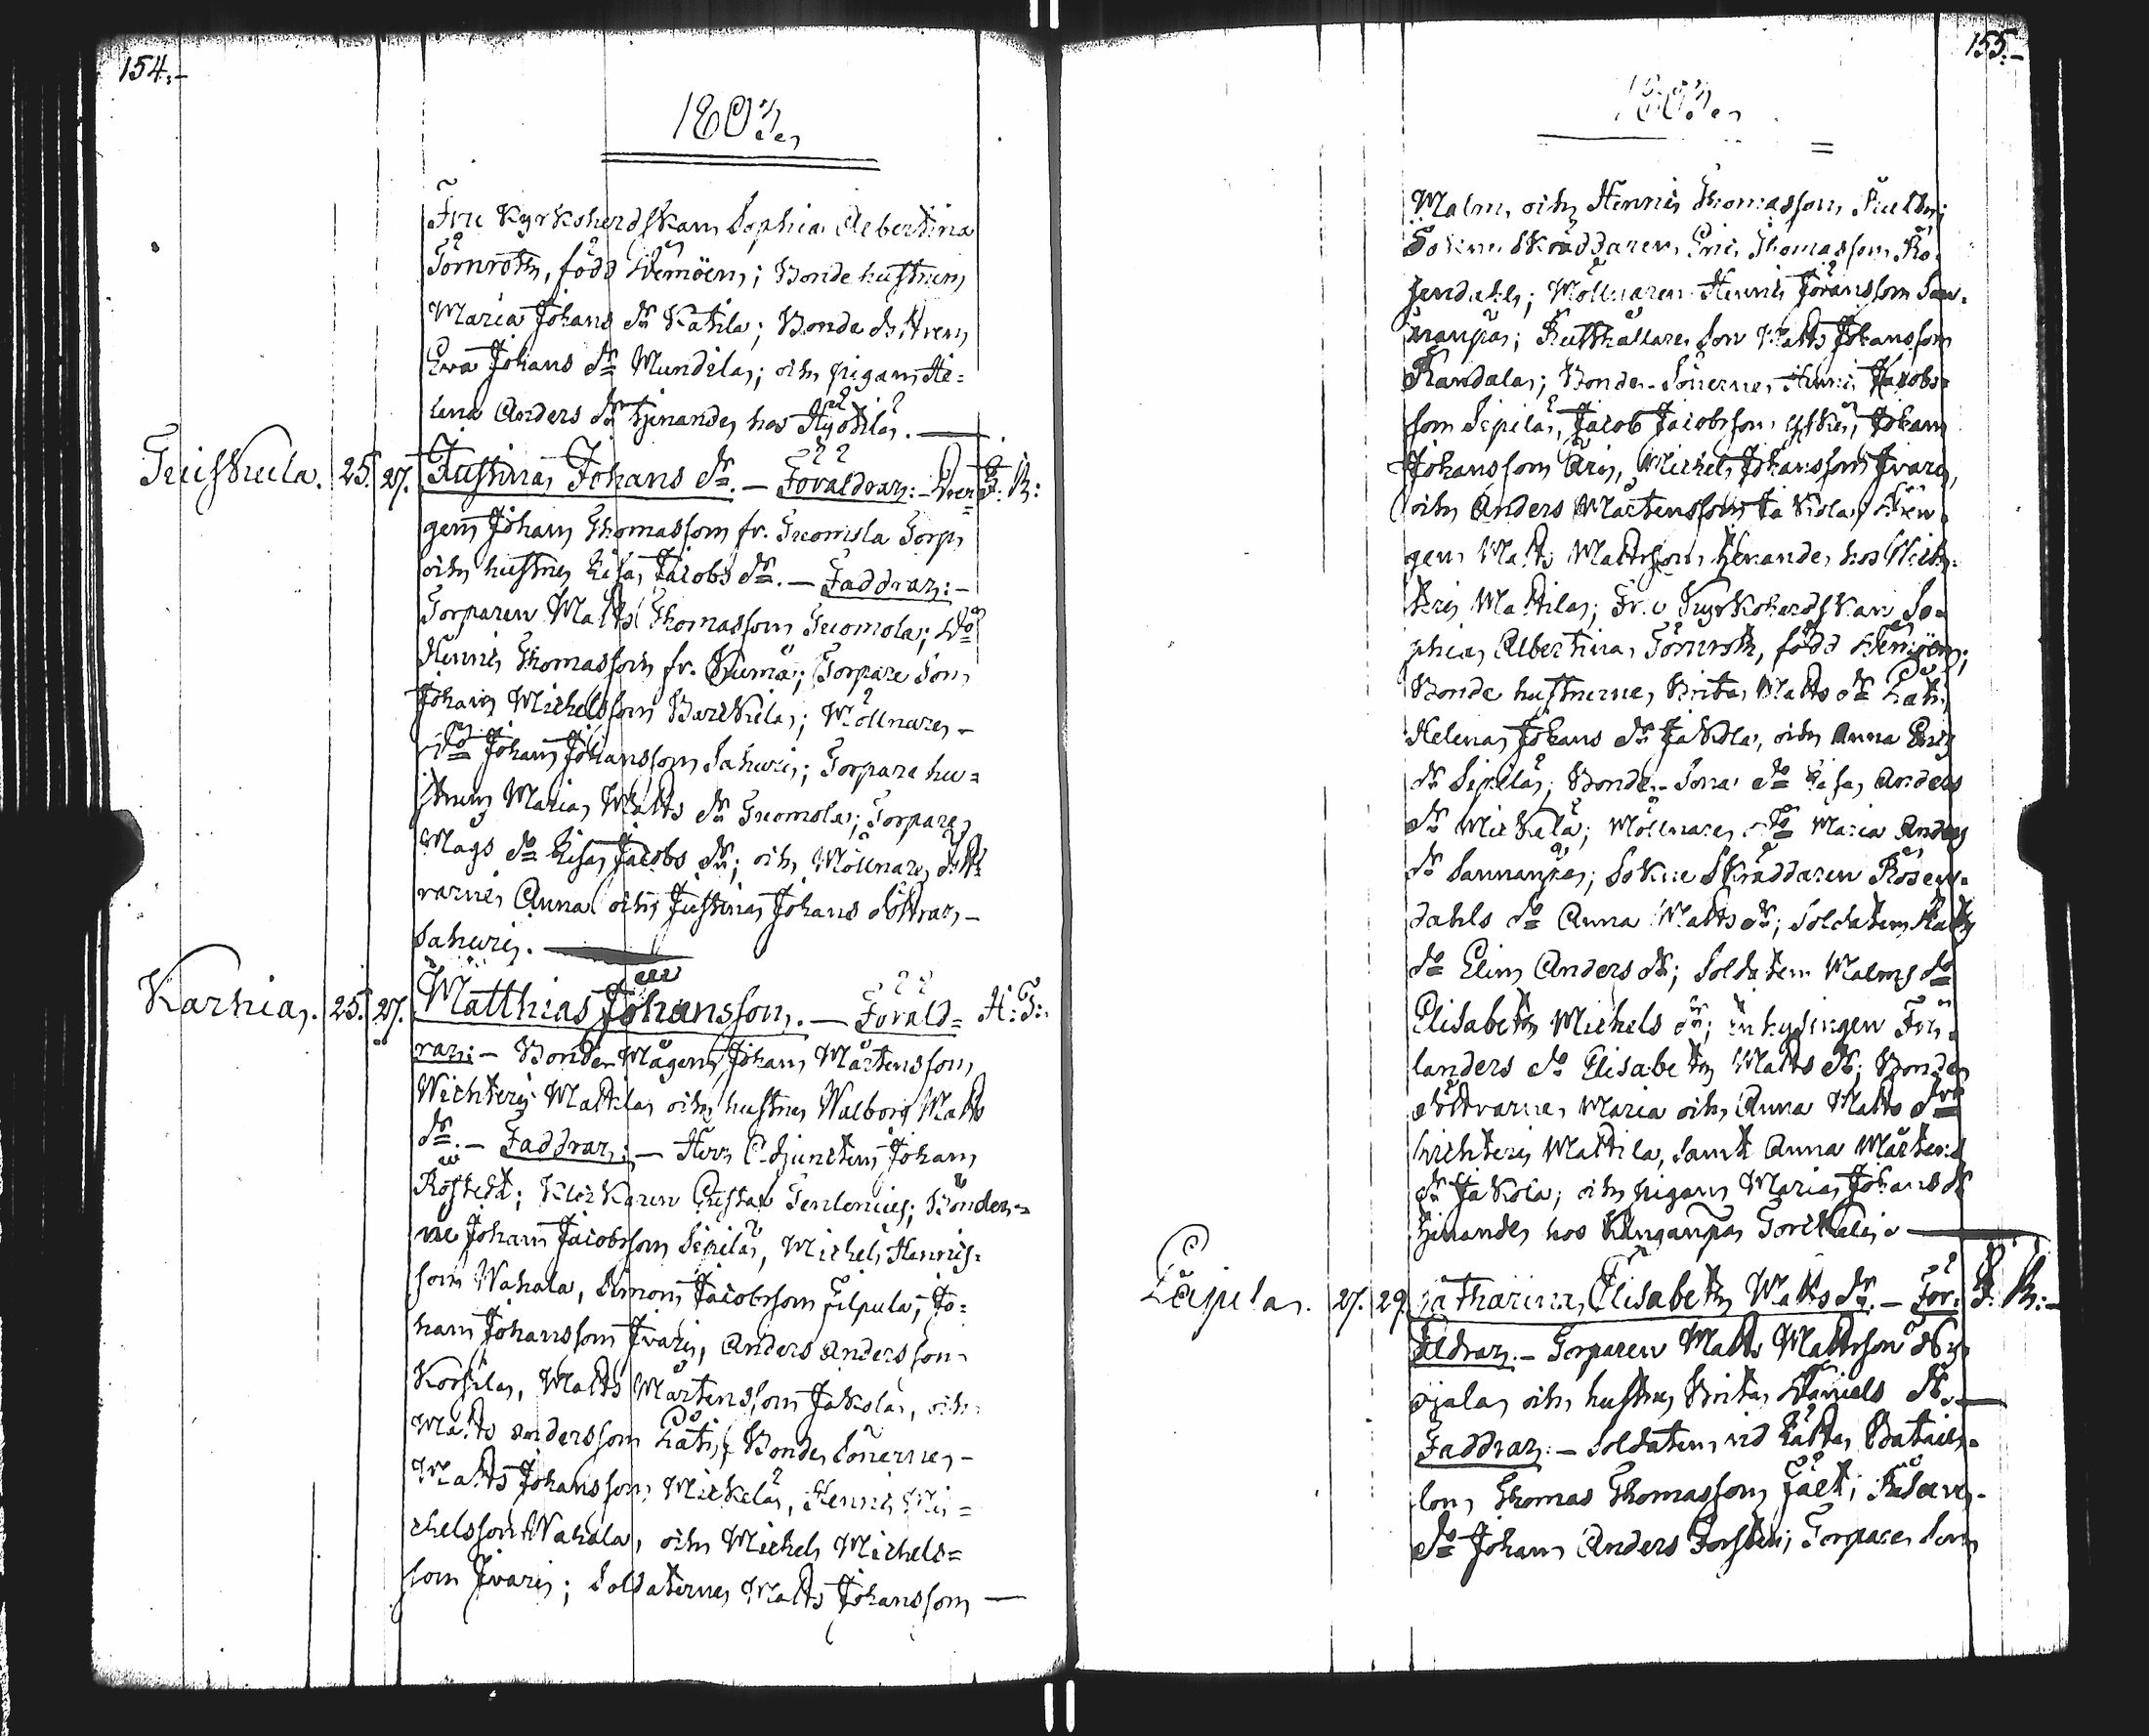 154.-
1803.
Fru Kyrkoherdskan Sophia Albertina
Törnroth, född Hemöen; Bonde hustrun
Maria Johans dr Katila; Bonde dottren
Eva Johans dr Mundila; och pigan He=
lena Anders dr tjenande hos Hyötilä.
25. 27. Justina Johans dr. - Föräldrar: - Dren=
gen Johan Thomasson fr. Tuomola Torp
och hustru Lisa Jacobs dr. - Faddrar: -
Torparen Matts Thomasson Tuomola; do
Henric Thomasson fr. ; Torpare Son
Johan Michelsson ; Möllnare
do Johan Johansson Sahuri; Torpare hu=
strun Maria Matts dr Tuomola; Torpare
Mågs do Lisa Jacobs dr; och Möllnare dött=
rarne Anna och Justina Johans döttrar
Sahuri.
Karhia. 25. 27. Matthias Johansson. - Föräld= H: T:
rar: - Bonde Mågen Johan Mårtensson
Wichteri Mattila och hustru Walborg Matts
dr. - Faddrar: - Herr Adjuncten Johan
Rostedt; Klockaren Gustav Tenlenius; Bönder=
ne Johan Jacobsson Sipilä, Michel Henrics=
son Wahala, Simon Jacobsson Filpula, Jo=
han Johansson Ivari, Anders Andersson
Korpila, Matts Mårtensson Jakola, och
Matts Andersson Lati; Bonde Sönerne
Matts Johansson Mickelä, Henric Mi=
chelsson Wahala, och Michel Michels=
son Ivari; Soldaterne Matts Johansson
155.-
1803.
Malm, och Henric Thomasson
Sokne Skräddaren Eric Thomasson Ro=
sendahl; Möllnaren Henric Göransson San=
nanpä; Rusthållare Son Matts Johansson
Randala; Bonde Sönerne Henric Jacobs=
son Sipilä, Jacob Jacobsson , Johan
Johansson , Michel Johansson Ivari,
och Anders Mårtensson Jakola; Dren=
gen Matts Mattsson tjenande hos Wich=
teri Mattila; Fru Kyrkoherdskan So=
phia Albertina Törnroth, född Hemöen;
Bonde hustrurne Brita Matts dr Lati,
Helena Johans dr Jakola, och Anna Erics
dr Sipilä; Bonde Sona do Lisa Anders
dr Mickelä; Möllnare do Maria Anders
dr Sannanpä; Sokne Skräddaren Rosen=
dahls do Anna Matts dr; Soldaten
do Elin Anders dr; Soldaten Malms do
Elisabeth Michels dr; inhysingen
landers do Elisabeth Matts dr; Bonde
döttrarne Maria och Anna Matts dr
Wichteri Mattila, samt Anna Mårtens
dr Jakola; och pigan Maria Johans dr
tjenande hos Kanganpä
27. 29. Catharina Elisabeth Matts dr. - För=
äldrar. - Torparen Matts Mattsson
och hustru Brita Daniels dr.
Faddrar: - Soldaten vid Lätta Batail=
lon Thomas Thomasson Fält;
do Johan Anders Forsten; Torpare Son